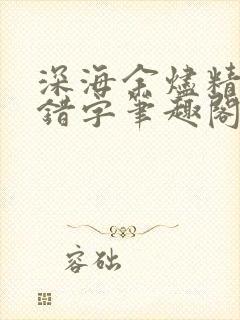 深海余烬精
错字笔趣阁
容础